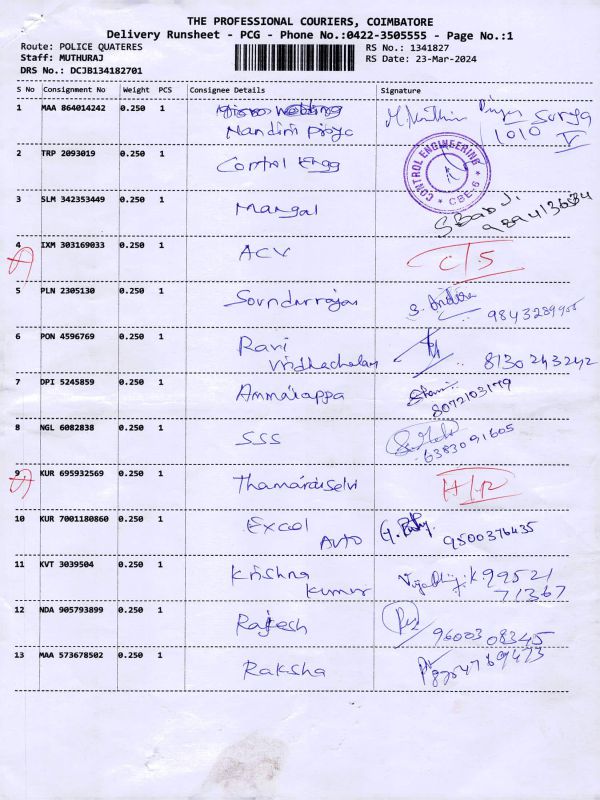 THE PROFESSIONAL COURIERS, COIMBATORE
Delivery Runsheet - PCG - Phone No.:0422-3505555 - Page No.:1
Route: POLICE QUATERES RS No.: 1341827
Staff: MUTHURAJ RS Date: 23-Mar-2024
DRS No.: DCJB134182701
S No Consignment No Weight PCS Consignee Details Signature
1 MAA 864014242 0.250 1
Nandini Priya
Surya
1010 V
2 TRP 2093019 0.250 1 Control Engg
CONTROL ENGINEERING * CBE-6 *
3 SLM 342353449 0.250 1 Mangal
S Babu J.
4 IXM 303169033 0.250 1 ACV C/S
5 PLN 2305130 0.250 1 Soundurrajan
6 PON 4596769 0.250 1 Ravi
Vridhachalam 8130243242
7 DPI 5245859 0.250 1 Ammaiappa
8072103179
8 NGL 6082838 0.250 1 SSS
6383091605
9 KUR 695932569 0.250 1 Thamaraiselvi
10 KUR 7001180860 0.250 1 Excel
Auto 9500376435
11 KVT 3039504 0.250 1 Krishna
Kumar
99521
71367
12 NDA 905793899 0.250 1 Rajesh
9600308345
13 MAA 573678502 0.250 1 Raksha